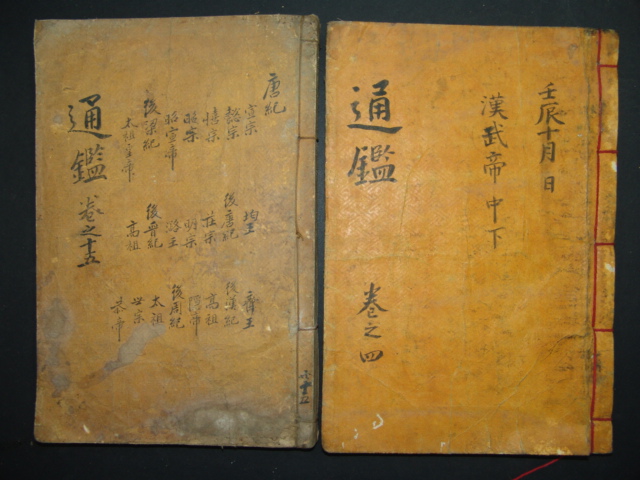 唐紀
宣宗
懿宗
僖宗
昭宗
昭宣帝
後梁紀
太祖皇帝
均王
後唐紀
莊宗
明宗
潞王
後晉紀
高祖
齊王
後漢紀
高祖
隱帝
後周紀
太祖
世宗
恭帝
通鑑 卷之十五
壬辰十月 日
漢武帝 中下
通鑑 卷之四